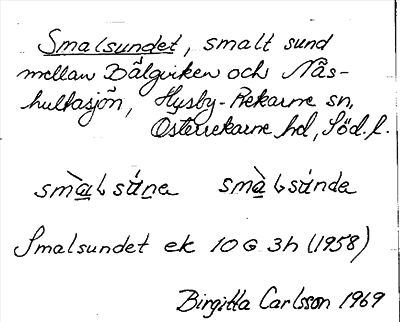 Smalsundet, smalt sund
mellan Bälgviken och Näs-
hultasjön, Husby-Rekarne sn,
Österrekarne hd, Söd. l.
smàlsúne smàlsúnde
Smalsundet ek 10G 3h (1958)
Birgitta Carlsson 1969